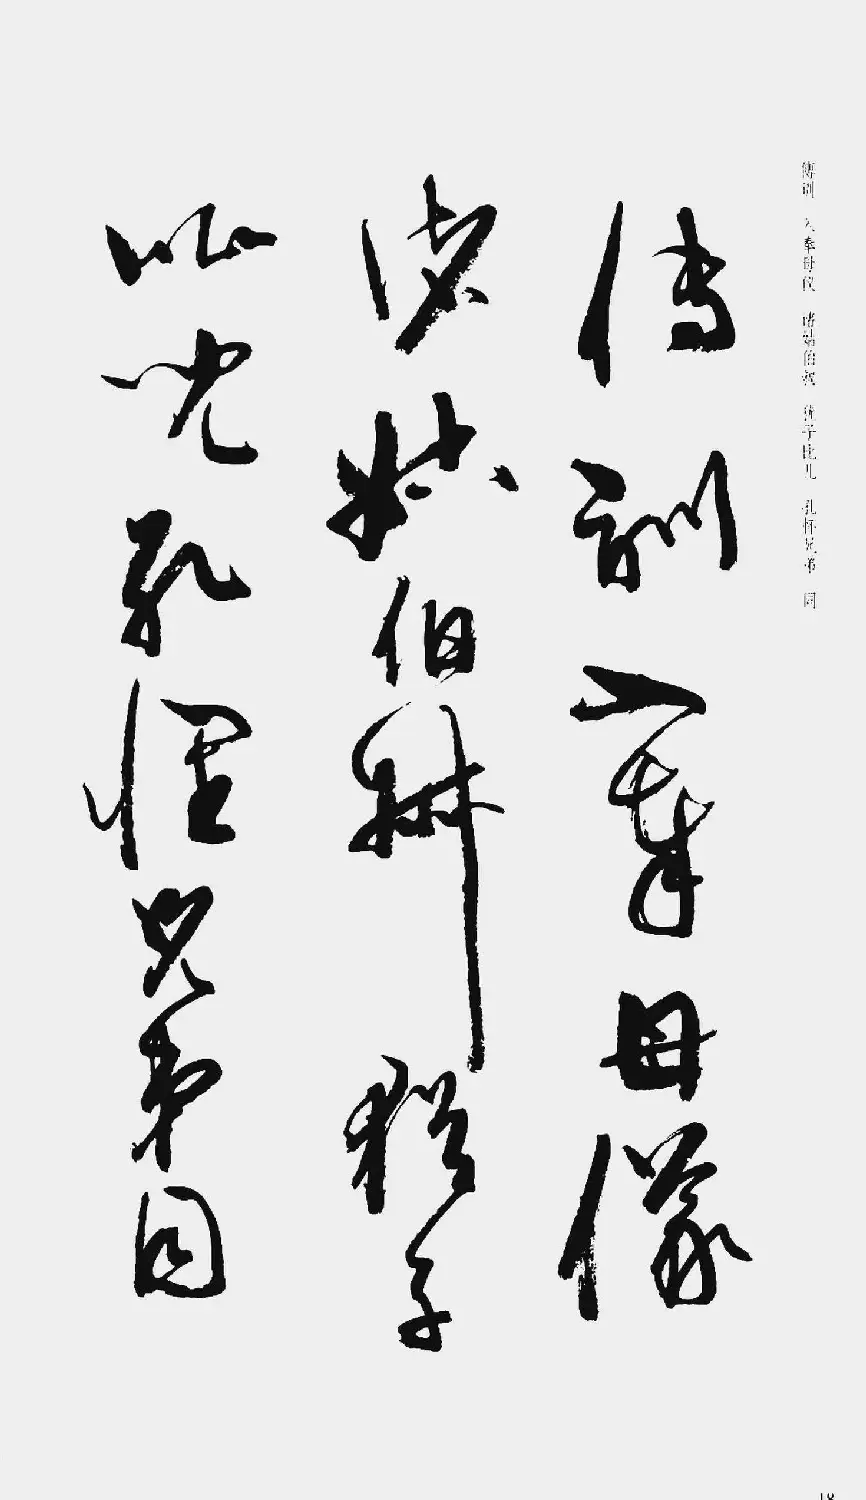 傅訓入奉母儀
諸姑伯叔猶子
比兒孔懷兄弟同
傅训 入奉母仪 诸姑伯叔 犹子比儿 孔怀兄弟 同
18